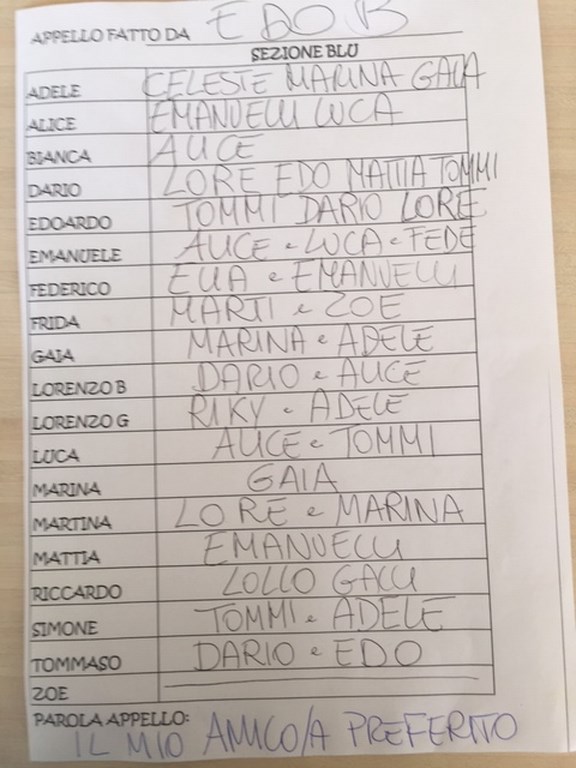 APPELLO FATTO DA EDO B
SEZIONE BLU
ADELE CELESTE MARINA GAIA
ALICE EMANUELLI LUCA
BIANCA ALICE
DARIO LORE EDO MATTIA TOMMI
EDOARDO TOMMI DARIO LORE
EMANUELE ALICE e LUCA e FEDE
FEDERICO ELIA e EMANUELLI
FRIDA MARTI e ZOE
GAIA MARINA e ADELE
LORENZO B DARIO e ALICE
LORENZO G RIKY e ADELE
LUCA ALICE e TOMMI
MARINA GAIA
MARTINA LORE e MARINA
MATTIA EMANUELLI
RICCARDO LOLLO GALLI
SIMONE TOMMI e ADELE
TOMMASO DARIO e EDO
ZOE
PAROLA APPELLO:
IL MIO AMICO/A PREFERITO